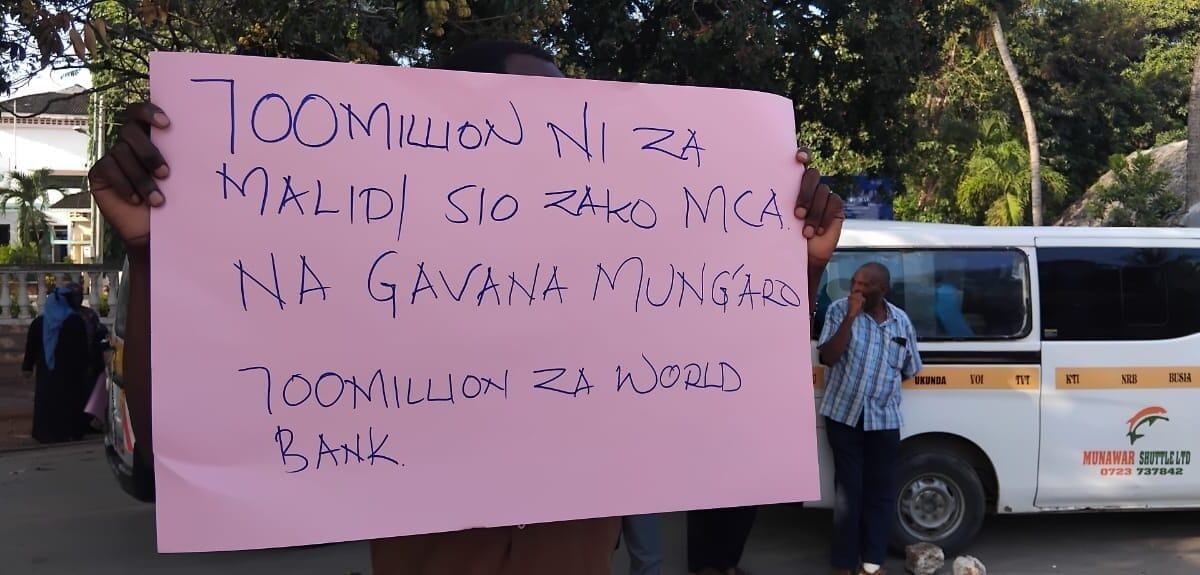 700MILLION NI ZA
MALIDI SIO ZAKO MCA.
NA GAVANA MUNG'ARO
700MILLION ZA WORLD
BANK.
UKUNDA VOI TVT KTI NRB BUSIA
MUNAWAR SHUTTLE LTD
0723 737842